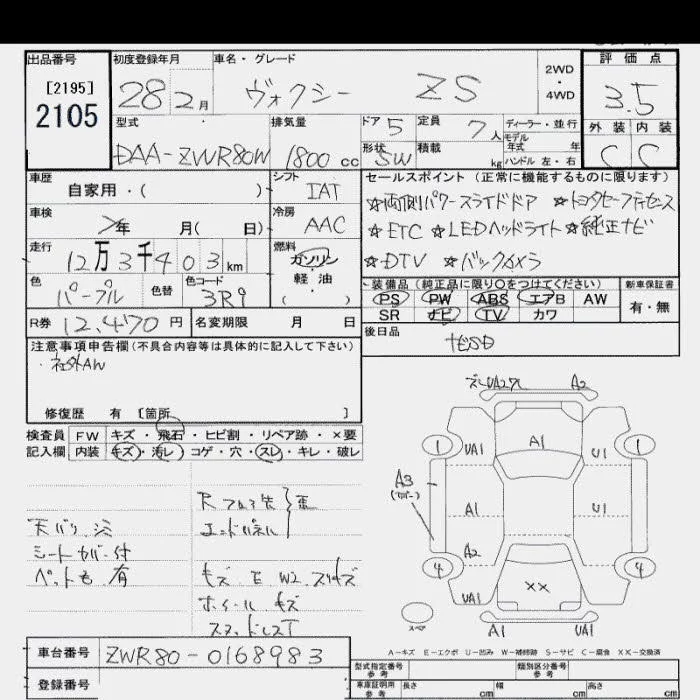 出品番号 初度登録年月 車名・グレード 2WD・4WD 評価点
[2195]
2105
28 2月 ヴォクシー ZS 3.5
型式 排気量 ドア 5 定員 7人 ディーラー・並行 外装 内装
モデル年式 年式
DAA-ZWR80W 1800cc 形状 SW 積載 kg ハンドル 左・右 C C
車歴 自家用・( ) シフト IAT セールスポイント (正常に機能するものに限ります)
車検 年 月( 日) 冷房 AAC ☆両側パワースライドドア ☆トヨタセーフティセンス
☆ETC ☆LEDヘッドライト ☆純正ナビ
走行 12万3千403km 燃料 ガソリン 軽油 ( ) ☆DTV ☆バックカメラ
色 パープル 色替 色コード 3R9 装備品 (純正品に限り○をつけてください) 新車保証書
PS PW ABS エアB AW 有・無
SR ナビ TV カワ
R券 12,470円 名変期限 月 日 後日品
ナビSD
注意事項申告欄 (不具合内容等は具体的に記入して下さい)
・社外AW
修復歴 有 [箇所 ]
検査員 FW キズ・飛石・ヒビ割・リペア跡・×要
記入欄 内装 キズ・汚レ コゲ・穴・スレ・キレ・破レ
天バリ
シートカバー付
ペット毛 有
エンドパネル
キズ E W2 スリキズ
ホイール キズ
スタッドレスT
A2
1 UA1 A1 U1 1
A3
A1 U1
A2
4 XX 4
UA1
スペア A1 UA1
A-キズ E-エクボ U-凹み W-補修跡 S-サビ C-腐食 XX-交換済
車台番号 ZWR80-0168983
登録番号
型式指定番号 参考 類別区分番号 参考
車庫証明用 参考 長さ cm 幅 cm 高さ cm